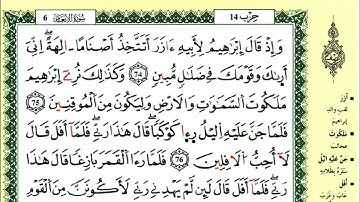 6 سُورَةُ الأَنْعَام حزب 14
وَإِذْ قَالَ إِبْرَٰهِيمُ لِأَبِيهِ ءَازَرَ أَتَتَّخِذُ أَصْنَامًا ـالِهَةً إِنِّيَ
أَرَىٰكَ وَقَوْمَكَ فِي ضَلَٰلٍ مُّبِينٍ 74 وَكَذَٰلِكَ نُرِي إِبْرَٰهِيمَ
مَلَكُوتَ السَّمَٰوَٰتِ وَالَارْضِ وَلِيَكُونَ مِنَ الْمُوقِنِينَ 75
فَلَمَّا جَنَّ عَلَيْهِ اِليْلُ رَءَا كَوْكَبًا قَالَ هَٰذَا رَبِّي فَلَمَّا أَفَلَ قَالَ
لَا أُحِبُّ الَافِلِينَ 76 فَلَمَّا رَءَا الْقَمَرَ بَازِغًا قَالَ هَٰذَا
رَبِّي فَلَمَّا أَفَلَ قَالَ لَئِن لَّمْ يَهْدِنِي رَبِّي لَأَكُونَنَّ مِنَ الْقَوْمِ
آزَرَ
لقب والد
إبراهيم
مَلَكُوتَ
عجائب
جَنَّ عَلَيْهِ اليْلُ
سَتَرَهُ بظلامه
أَفَلَ
غَابَ وغَرَبَ